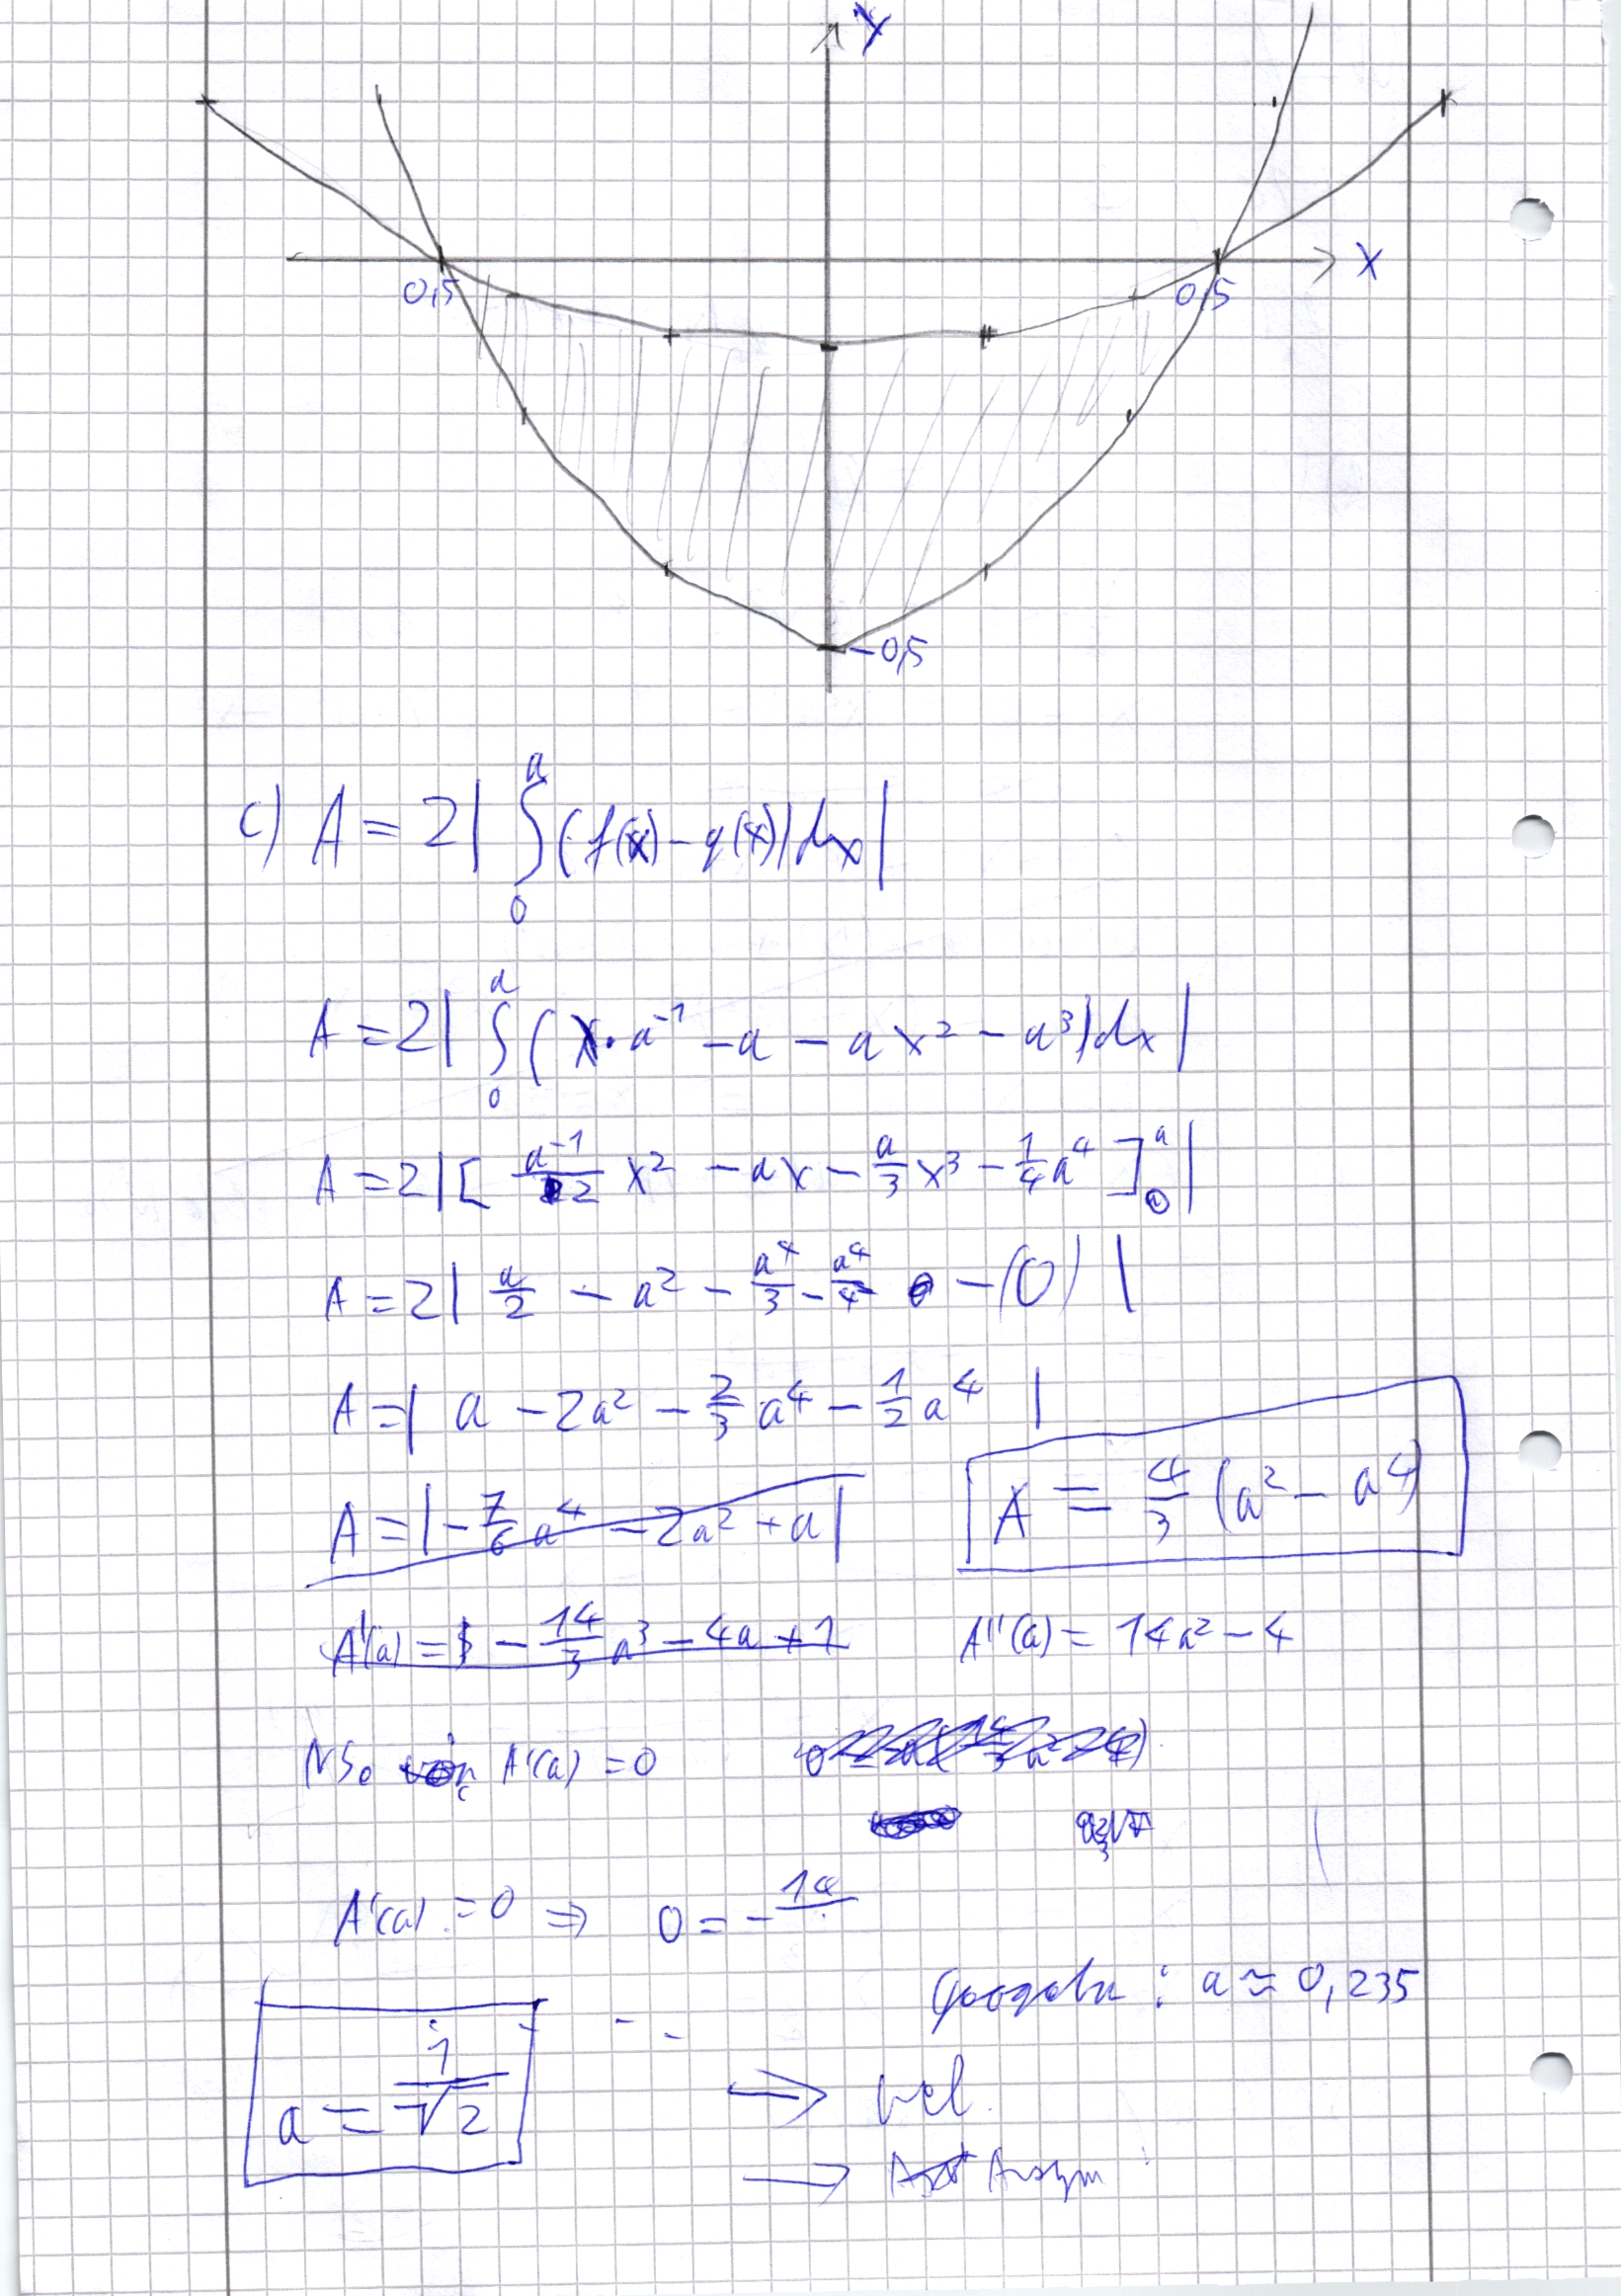 Y
X
0,5
0,5
-0,5
c) A = 2| ∫₀ᵃ (f(x) - g(x))dx |
A = 2| ∫₀ᵃ (x · a⁻¹ - a - ax² - a³)dx |
A = 2|[ a⁻¹/2 x² - ax - a/3 x³ - 1/4 a⁴ ]₀ᵃ|
A = 2| a/2 - a² - a⁴/3 - a⁴/4 - (0) |
A = | a - 2a² - 2/3 a⁴ - 1/2 a⁴ |
A = |- 7/6 a⁴ - 2a² + a|
A = 4/3 (a² - a⁴)
A'(a) = - 14/3 a³ - 4a + 1
A''(a) = 14a² - 4
A'(a) = 0
A'(a) = 0 ⇒ 0 = - 14
: a ≈ 0,235
a = 1/√2
⇒
→